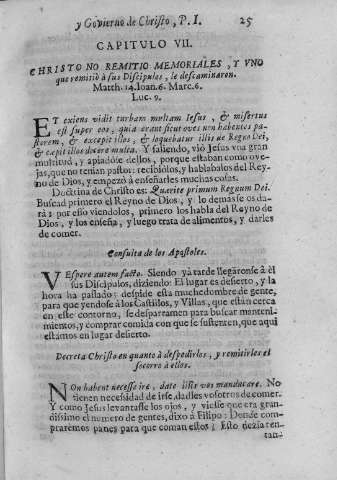 y Govierno de Christo, P. I. 25
CAPITULO VII.
CHRISTO NO REMITIO MEMORIALES, Y VNO
que remitiò à sus Discipulos, le descaminaron.
Matth. 14. Ioan. 6. Marc. 6.
Luc. 9.
ET exiens vidit turbam multam Iesus, & misertus
est super eos, quia erant sicut oves non habentes pa-
storem, & excepit illos, & loquebatur illis de Regno Dei,
& cœpit illos docere multa. Y saliendo, viò Jesus vna gran
multitud, y apiadóse dellos, porque estaban como ove-
jas, que no tenian pastor: recibiólos, y hablabalos del Rey-
no de Dios, y empezó à enseñarles muchas cosas.
Doctrina de Christo es: Quærite primum Regnum Dei.
Buscad primero el Reyno de Dios, y lo demàs se os da-
rà: por esso viendolos, primero los habla del Reyno de
Dios, y los enseña, y luego trata de alimentos, y darles
de comer.
Consulta de los Apostoles.
VEspere autem facto. Siendo yà tarde llegaronse à èl
sus Discipulos, diziendo: El lugar es desierto, y la
hora ha passado: despide esta muchedumbre de gente,
para que yendose à los Castillos, y Villas, que estàn cerca
en este contorno, se desparramen para buscar manteni-
mientos, y comprar comida con que se sustenten, que aqui
estàmos en lugar desierto.
Decreta Christo en quanto à despedirlos, y remitirles el
socorro à ellos.
NOn habent necesse ire, date illis vos manducare. No
tienen necesidad de irse, dadles vosotros de comer.
Y como Jesus levantasse los ojos, y viesse que era gran-
dissimo el numero de gentes, dixo à Filipo: Donde com-
prarèmos panes para que coman estos? Esto dezia ten-
tan-